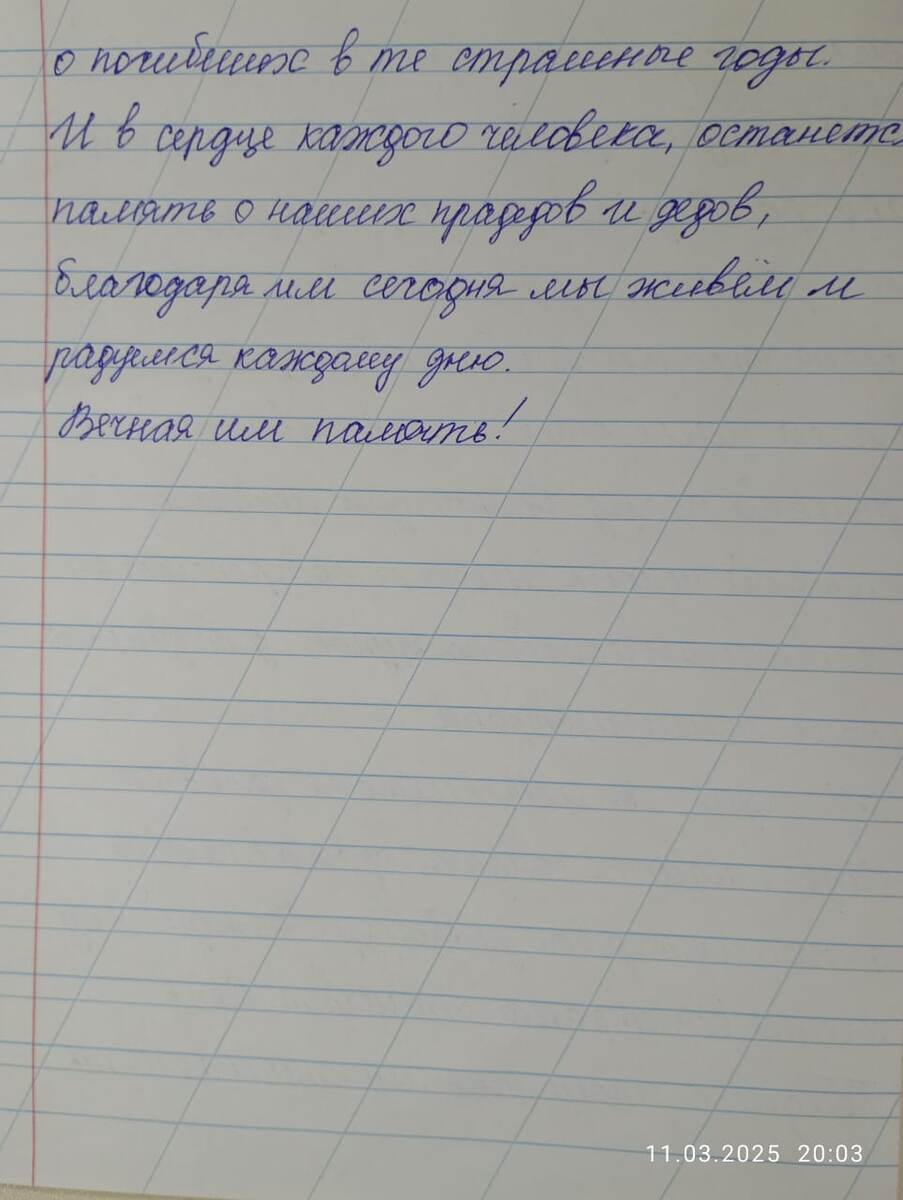 о погибших в те страшные годы.
И в сердце каждого человека, останется
память о наших прадедов и дедов,
благодаря им сегодня мы живём и
радуемся каждому дню.
Вечная им память!
11.03.2025 20:03